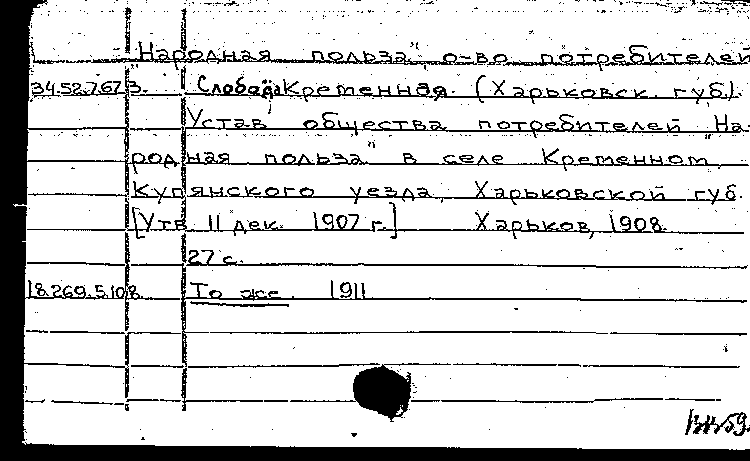 "Народная польза", о-во потребителей
34.52.7.67 3. Слобода Кременная. (Харьковск. губ.).
Устав общества потребителей "На-
родная польза" в селе Кременном,
Купянского уезда, Харьковской губ.
[Утв. 11 дек. 1907 г.] Харьков, 1908.
27 с.
18.269.5.108. То же. 1911